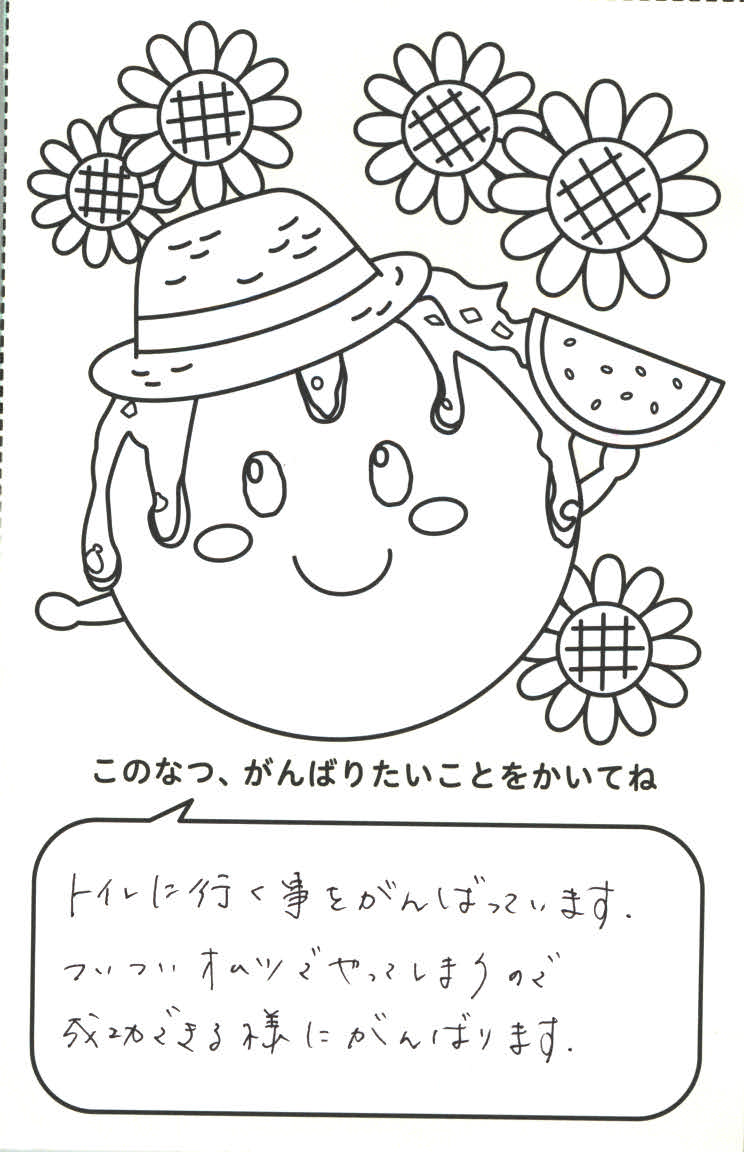 このなつ、がんばりたいことをかいてね
トイレに行く事をがんばっています.
ついついオムツでやってしまうので
成功できる様にがんばります.